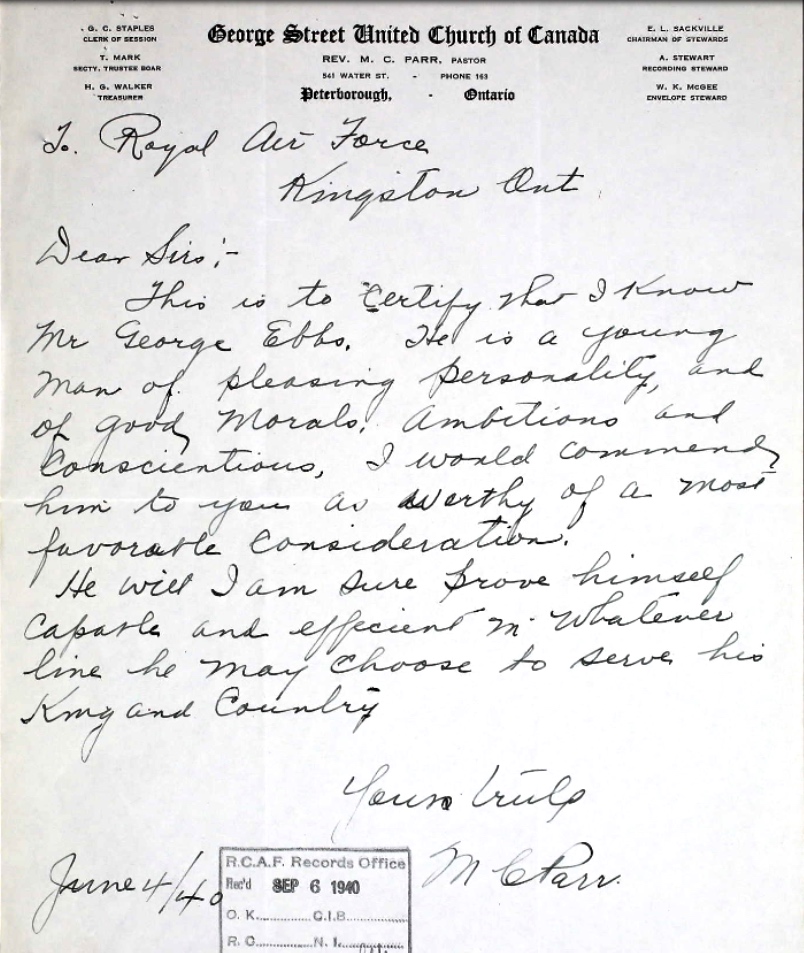 G. C. STAPLES
CLERK OF SESSION
T. MARK
SECTY. TRUSTEE BOAR
H. G. WALKER
TREASURER
George Street United Church of Canada
REV. M. C. PARR, PASTOR
541 WATER ST. - PHONE 163
Peterborough, - Ontario
E. L. SACKVILLE
CHAIRMAN OF STEWARDS
A. STEWART
RECORDING STEWARD
W. K. McGEE
ENVELOPE STEWARD
To. Royal Air Force
Kingston Ont
Dear Sirs;-
This is to Certify that I Know
Mr George Ebbs. He is a young
Man of pleasing personality, and
of good Morals. Ambitions and
Conscientious, I would commend
him to you as worthy of a most
favorable Consideration.
He will I am sure prove himself
Capable and efficient in Whatever
line he may Choose to serve his
King and Country
Yours truly
M C Parr.
June 4/40
R.C.A.F. Records Office
Rec'd SEP 6 1940
O. K. C.I.B.
R. C. N. I.